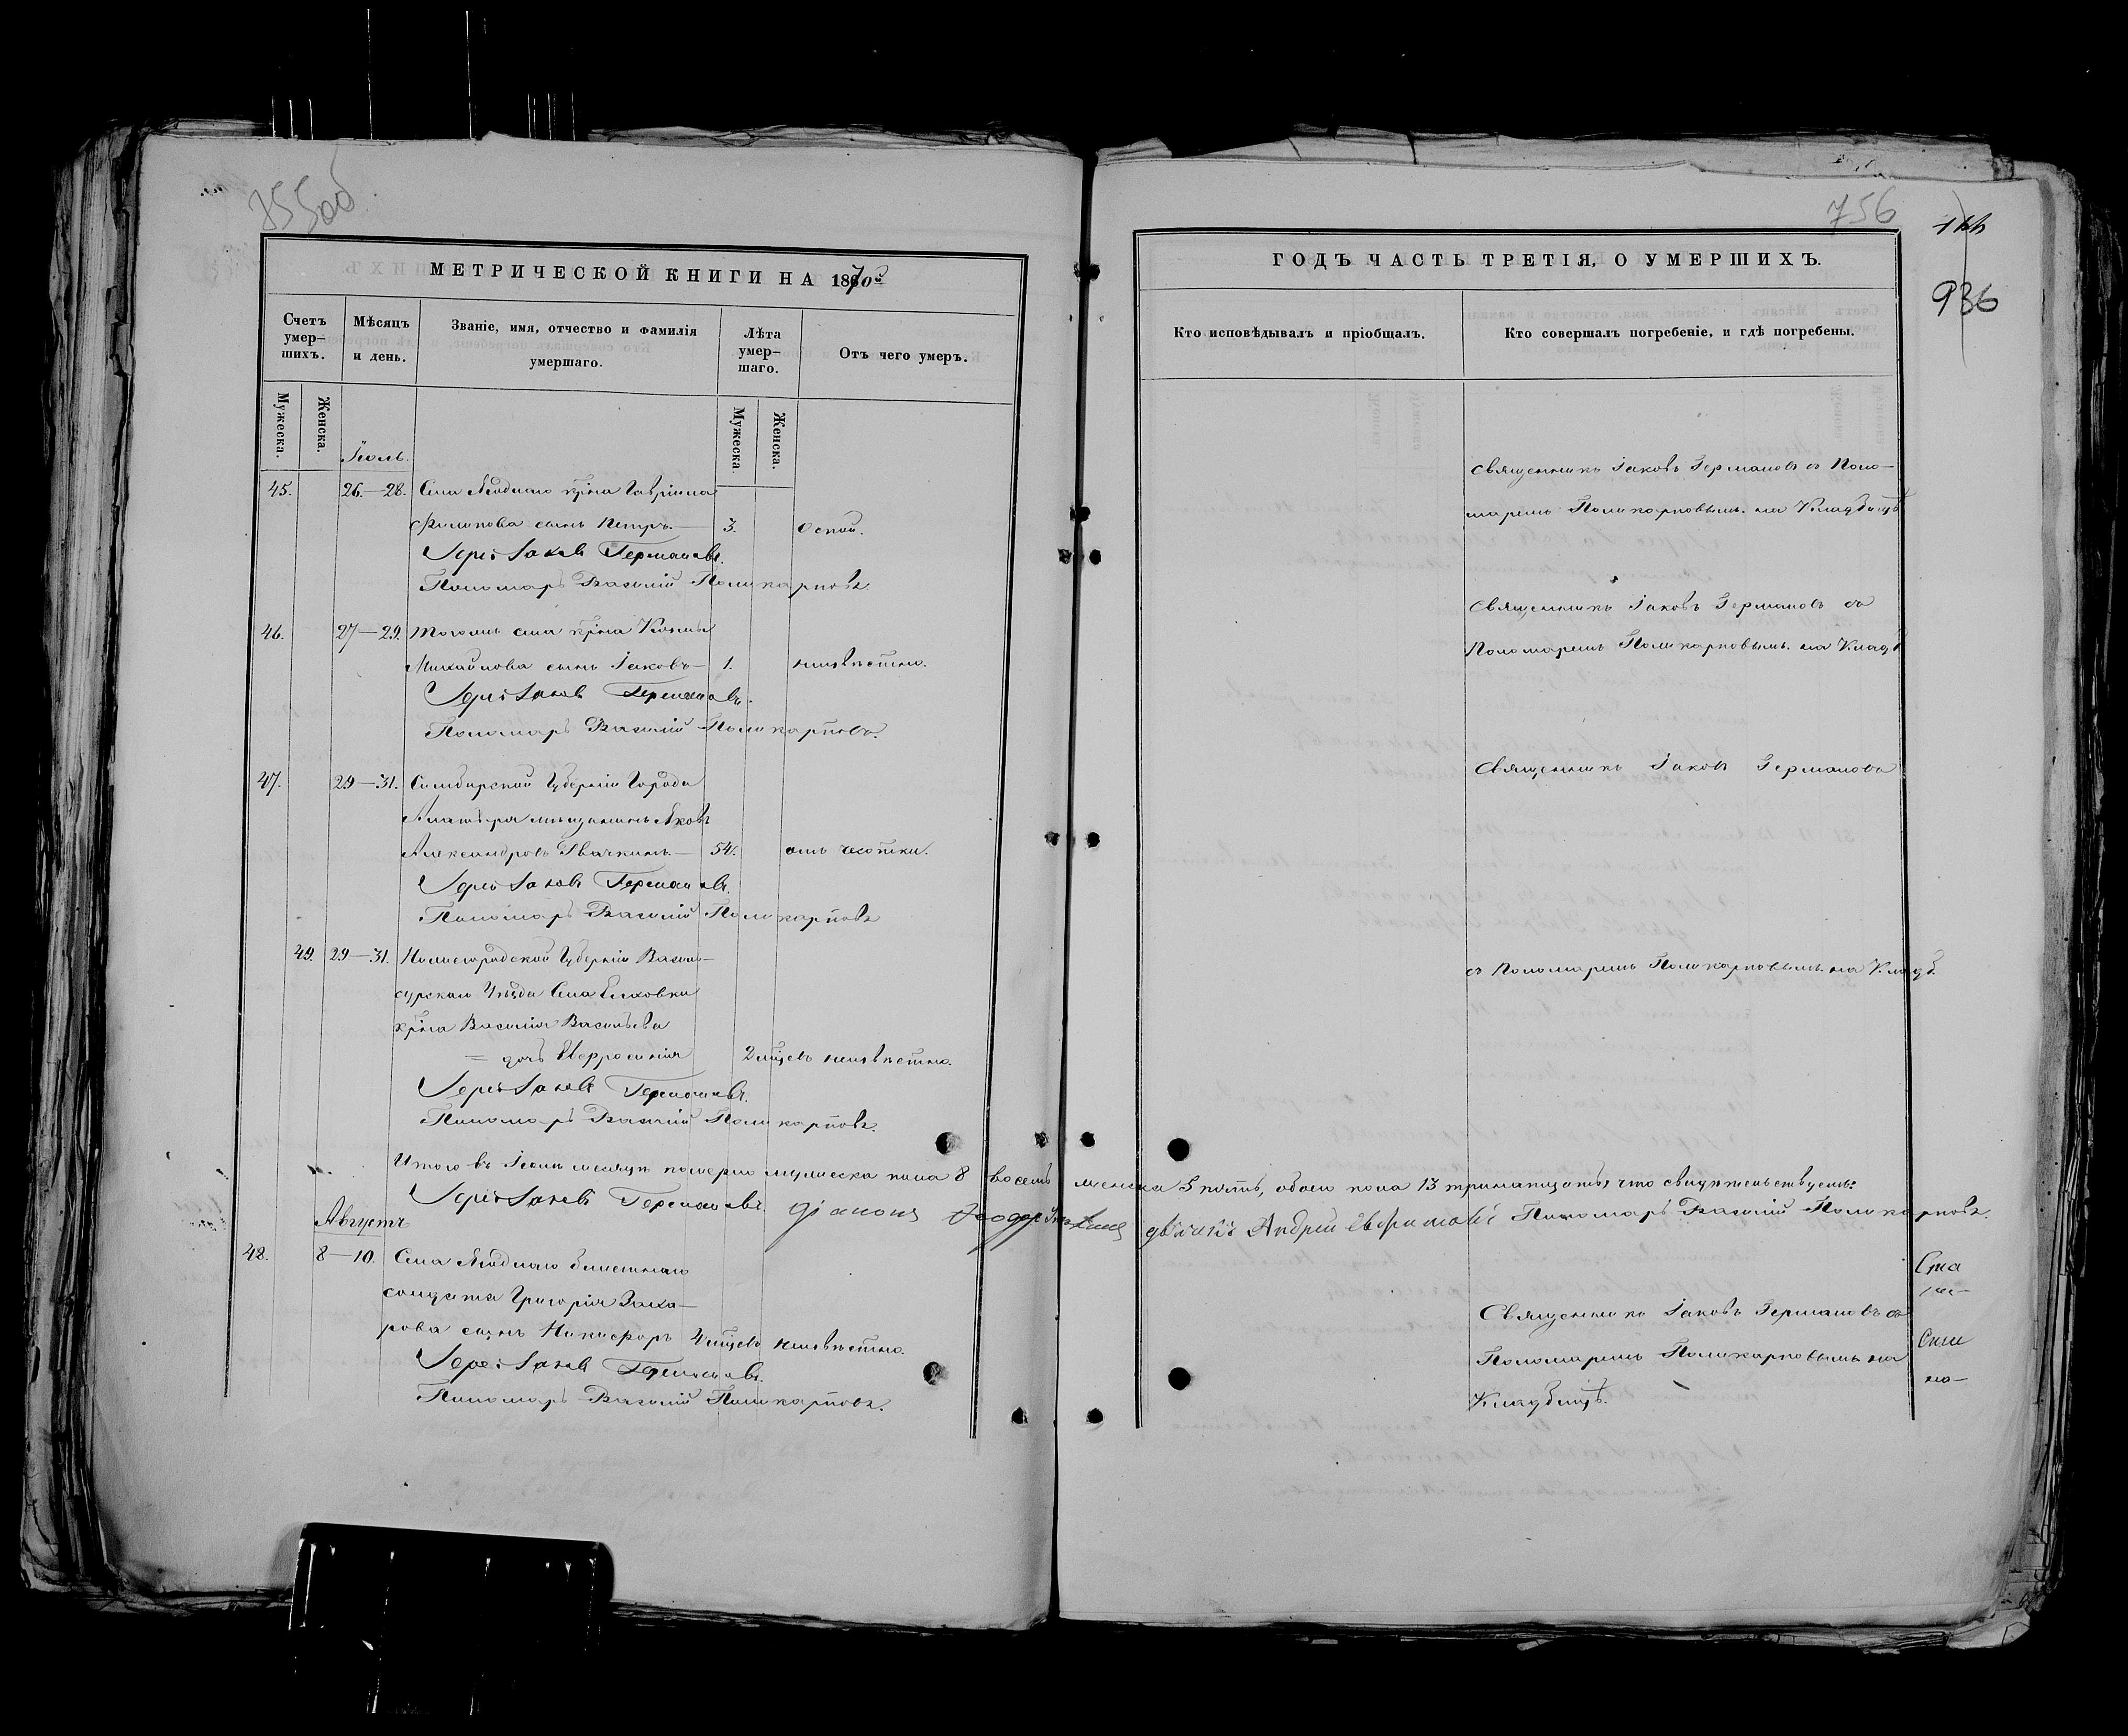 755об
МЕТРИЧЕСКОЙ КНИГИ НА 1870й
Счетъ умер-
шихъ.
Мѣсяцъ
и день.
Званіе, имя, отчество и фамилія
умершаго.
Лѣта
умер-
шаго.
Отъ чего умеръ.
Мужеска.
Женска.
Мужеска
Женска.
Іюль.
45. 26.—28. Села крна Гавріила
Филипова сынъ Петръ.— 3. Оспой.
Іерей Іаковъ Германовъ.
Пономарь Василій Поликарповъ.
46. 27—29. Тогожъ села крна Козмы
Михайлова сынъ Іаковъ— 1. неизвѣстно.
Іерей Іаковъ Германовъ.
Пономарь Василій Поликарповъ.
47. 29—31. Симбирской Губерніи Города
Алатыря мѣщанинъ Яковъ
Александровъ — 54. отъ чехотки.
Іерей Іаковъ Германовъ.
Пономарь Василій Поликарповъ
49. 29—31. Нижегородской Губерніи Василь-
сурскаго Уѣзда Села Елховки
крна Василія Васильева
= дочь Евфросинія 2 мцевъ неизвѣстно.
Іерей Іаковъ Германовъ.
Пономарь Василій Поликарповъ.
Итого въ Іюлѣ месяцѣ померло мужеска пола 8 восемь женска 5 пять, обоего пола 13 тринатцать, что свидѣтельствуемъ:
Іерей Іаковъ Германовъ. Діаконъ дьячекъ Андрей Пономарь Василій Поликарповъ.
Августъ
48. 8—10. Села билетнаго
солдата Григорія Заха-
рова сынъ Никифоръ 4 мцевъ неизвѣстно.
Іерей Іаковъ Германовъ.
Пономарь Василій Поликарповъ.
756
936
ГОДЪ ЧАСТЬ ТРЕТІЯ, О УМЕРШИХЪ.
Кто исповѣдывалъ и пріобщалъ.
Кто совершалъ погребеніе, и гдѣ погребены.
Священникъ Іаковъ Германовъ съ Поно-
маремъ Поликарповымъ. на Кладбищѣ
Священникъ Іаковъ Германовъ съ
Пономаремъ Поликарповымъ. на Кладб
Священникъ Іаковъ Германовъ
съ Пономаремъ Поликарповымъ на Кладб.
Священникъ Іаковъ Германовъ съ
Пономаремъ Поликарповымъ на
Кладбищѣ.